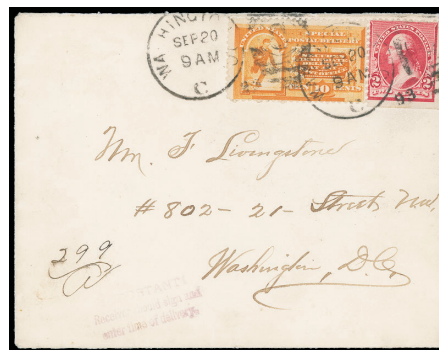 WASHINGTON
SEP 20
9 AM
C
UNITED STATES
SPECIAL
POSTAL DELIVERY
10
SEP 20
9 AM
C
93
2 2
Mr. F Livingstone
# 802 - 21 - Street N.W.
Washington, D.C.
299
Receiver must sign and
enter time of delivery.